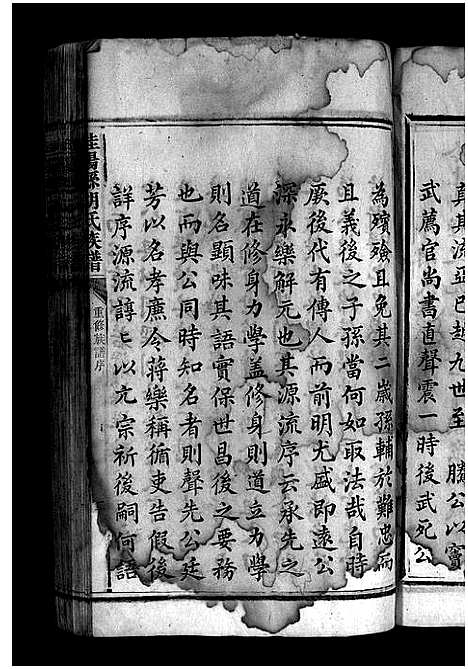 真其流亞已越九世至勝公以寶
武薦官尚書直聲震一時後武死公
為殯殮且免其二歲孫輔於難忠而
且義後之子孫當何如取法哉自時
厥後代有傳人而前明尤盛即遠公
深永樂解元也其源流序云承先之
道在修身力學蓋修身則道立力學
則名顯味其語實保世昌後之要務
也而與公同時知名者則聲先公廷
芳以名孝廉令蔣樂稱循吏告假後
詳序源流諄諄以亢宗祈後嗣何語
桂陽縣胡氏族譜
重修族譜序